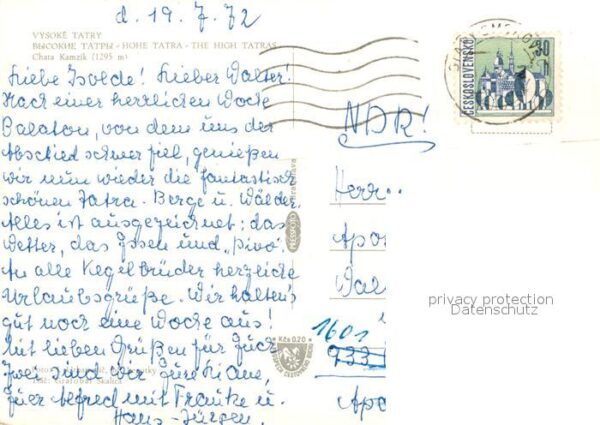 d. 19.7.72
VYSOKÉ TATRY
ВЫСОКИЕ ТАТРЫ - HOHE TATRA - THE HIGH TATRAS
Chata Kamzík (1295 m)
Liebe Isolde! Lieber Walter!
Nach einer herrlichen Woche
Balaton, von dem uns der
Abschied schwer fiel, genießen
wir nun wieder die fantastisch
schönen Tatra-Berge u. Wälder.
Alles ist ausgezeichnet: das
Wetter, das Essen und „Pivo“.
An alle Kegelbrüder herzliche
Urlaubsgrüße. Wir halten's
gut noch eine Woche aus!
Mit lieben Grüßen für Euch
Zwei sind wir
Euer Alfred mit Frauke u.
Hans-Jürgen.
ČESKOSLOVENSKO
30
NDR!
Herr
Apo
Wal
1601
933
Apo
Kčs 0,20
privacy protection
Datenschutz